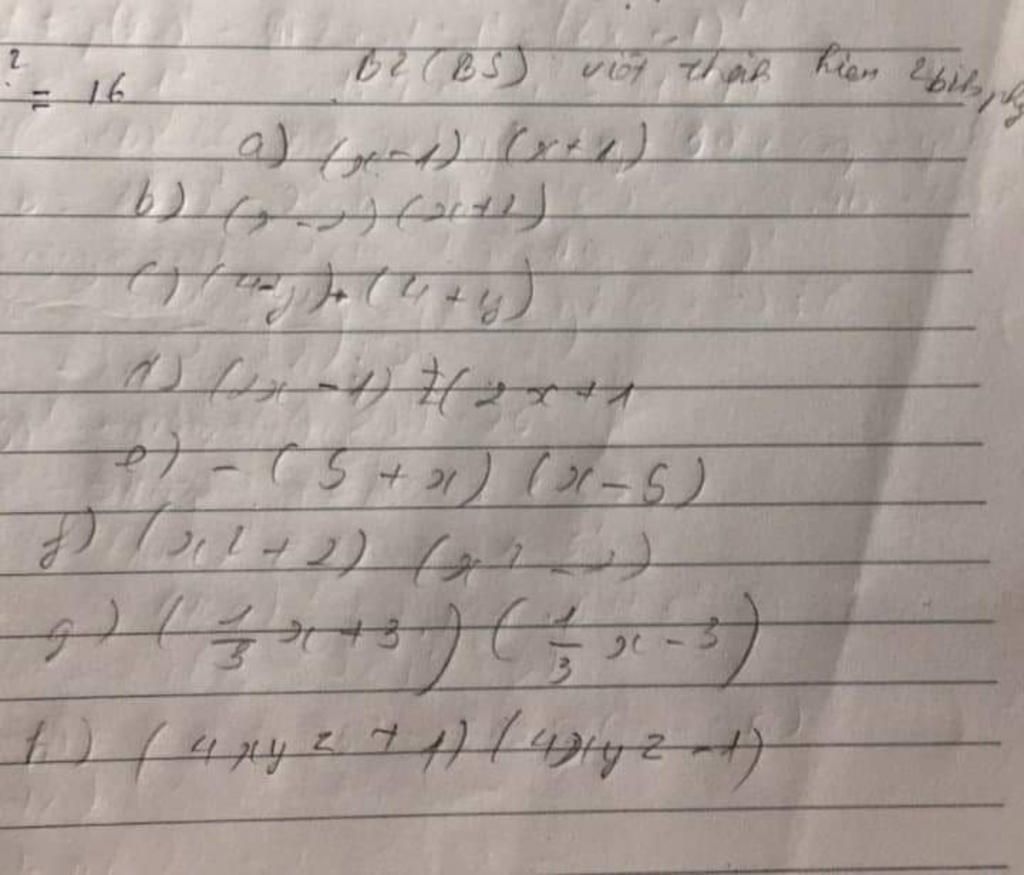 2
= 16
B2 (BS) viết thành hiệu 2 bth, phg
a) (x-1) (x+1)
b) (x-2) (x+2)
c) (4-y). (4+y)
(2x-1) (2x+1
e) - (5 + x) (x-5)
f) (x² + 2) (x² - 2)
g) (1/3 x + 3) (1/3 x - 3)
h) (4xyz + 1) (4xyz - 1)